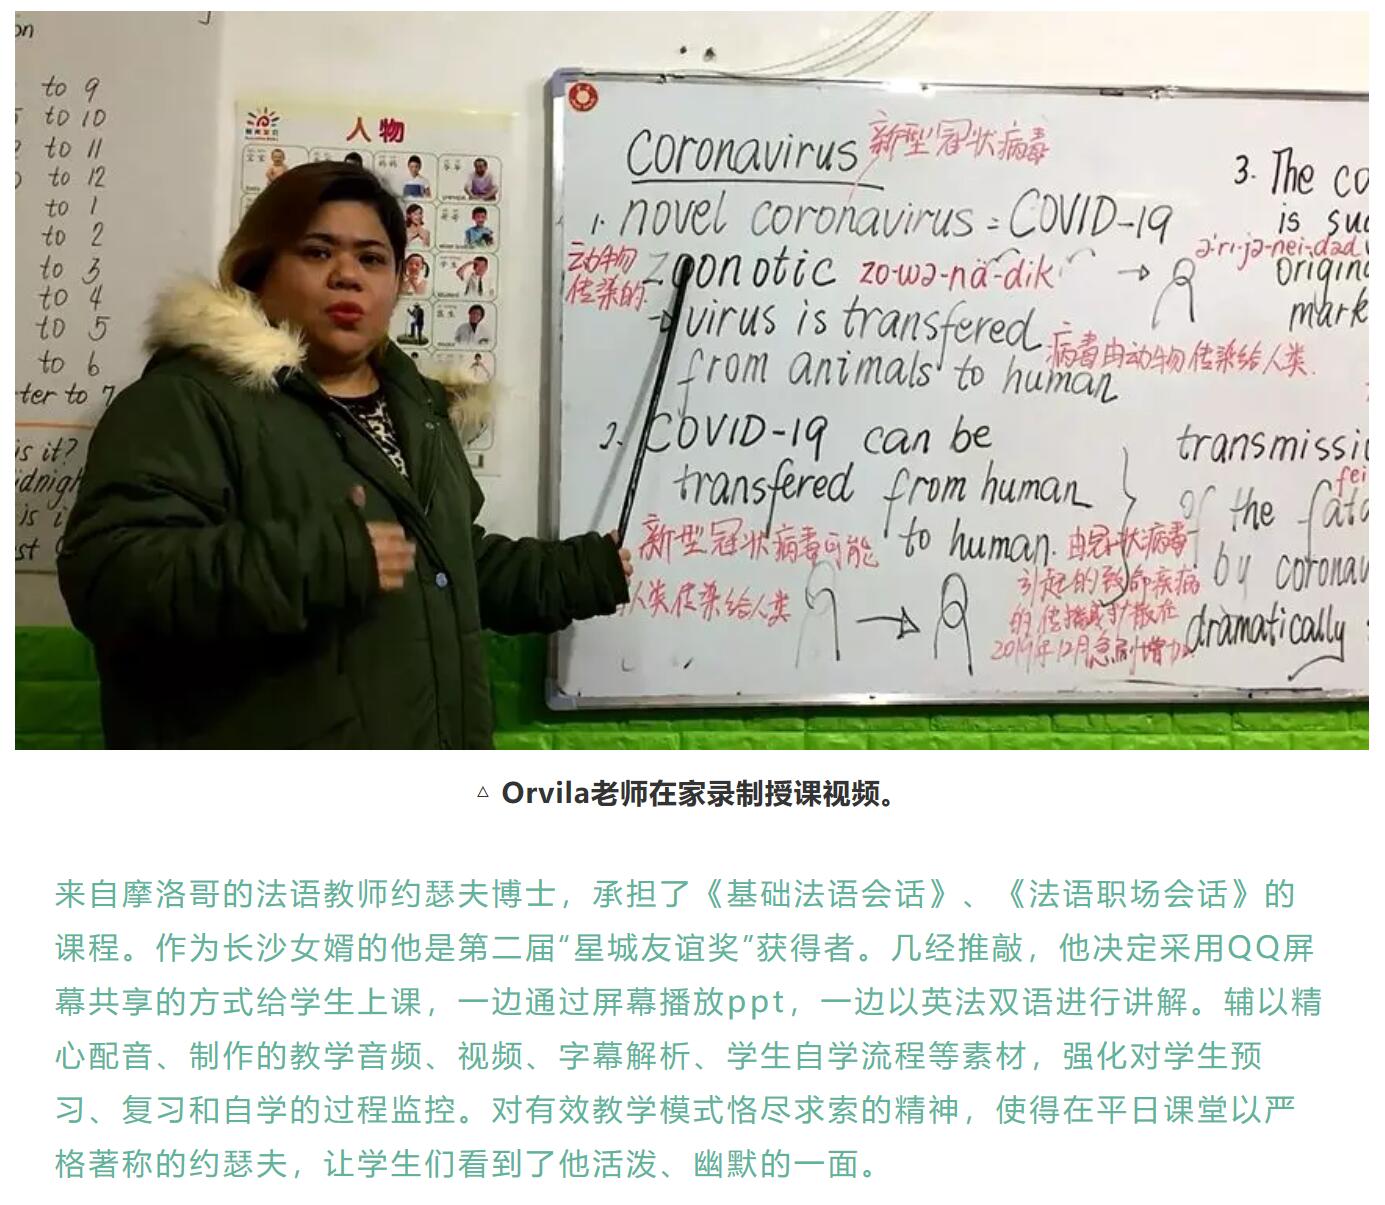 to 9
to 10
to 11
to 12
to 1
to 2
to 3
to 4
to 5
to 6
to 7
is it?
人物
学生
医生
coronavirus 新型冠状病毒
1. novel coronavirus = COVID-19
动物
传染的
zoonotic zo·wə-nä-dik
→ virus is transfered
from animals to human
病毒由动物传染给人类.
2. COVID-19 can be
transfered from human
to human.
新型冠状病毒可能
人类传染给人类
由冠状病毒
引起的致命疾病
的传播或扩散在
2019年12月急剧增加
3. The
is
ə·rı-jə-nei-dəd
mark
of the
by
dramatically
△ Orvila老师在家录制授课视频。
来自摩洛哥的法语教师约瑟夫博士，承担了《基础法语会话》、《法语职场会话》的
课程。作为长沙女婿的他是第二届“星城友谊奖”获得者。几经推敲，他决定采用QQ屏
幕共享的方式给学生上课，一边通过屏幕播放ppt，一边以英法双语进行讲解。辅以精
心配音、制作的教学音频、视频、字幕解析、学生自学流程等素材，强化对学生预
习、复习和自学的过程监控。对有效教学模式恪尽求索的精神，使得在平日课堂以严
格著称的约瑟夫，让学生们看到了他活泼、幽默的一面。